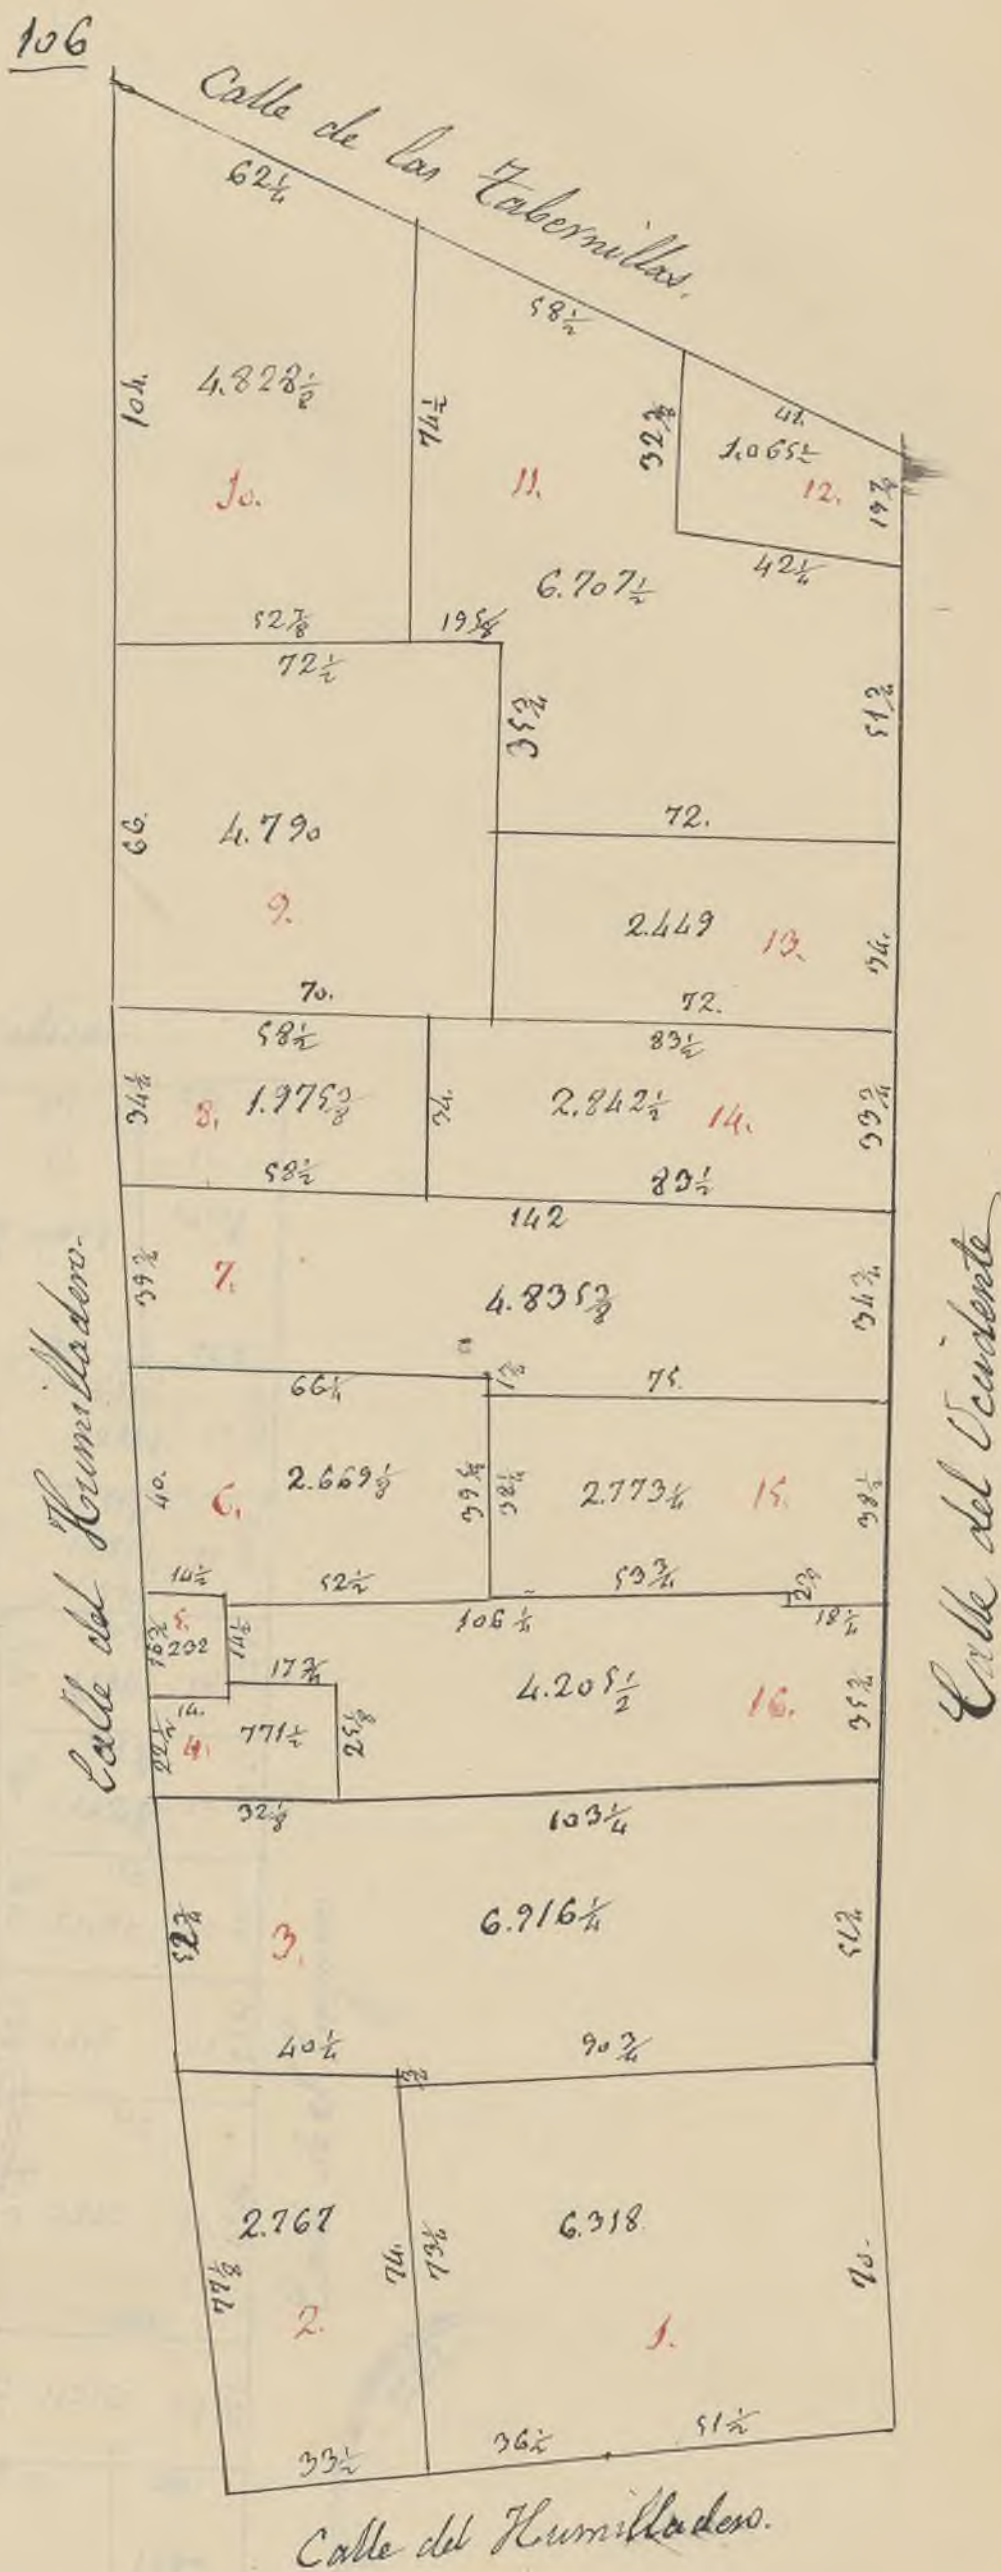 106
Calle de las Tabernillas.
62 1/4
58 1/2
41.
104.
4.828 1/2
74 1/2
11.
1.065 1/2
12.
10.
42 1/4
6.707 1/2
52 7/8
19 5/8
72 1/2
35 3/4
51 3/4
66.
4.790
72.
9.
2.449
13.
34.
70.
72.
58 1/2
83 1/2
34 1/2
8.
1.975 3/8
34.
2.842 1/2
14.
33 3/4
58 1/2
83 1/2
142
7.
4.835 3/8
34 3/4
66 1/4
75.
40.
6.
2.669 1/8
38 1/4
2.773 1/4
15.
38 1/2
14 1/2
52 1/2
53 3/4
106 1/4
18 1/4
5.
232
17 3/4
4.205 1/2
16.
35 3/4
14.
22 1/2
4.
771 1/2
25 1/8
32 1/8
103 1/4
52 3/4
3.
6.916 1/4
51 3/4
40 1/4
90 3/4
2.767
6.318
77 1/8
74.
73 1/2
70.
2.
1.
33 1/2
36 1/2
51 1/2
Calle del Humilladero.
Calle del Occidente
Calle del Humilladero.